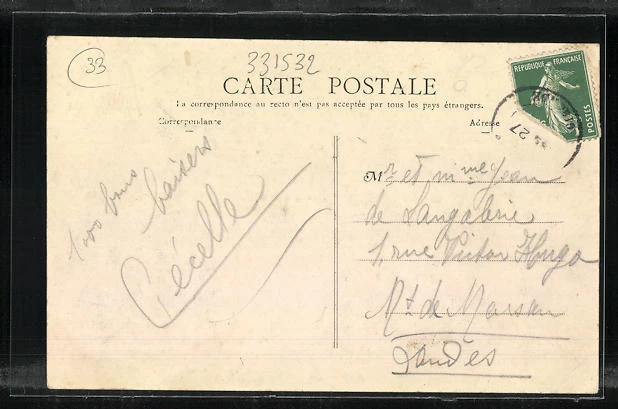 33
331532
CARTE POSTALE
La correspondance au recto n'est pas acceptée par tous les pays étrangers.
Correspondance
Adresse
REPUBLIQUE FRANÇAISE
POSTES
27
1000 bons
baisers
Cécelle
Mr et Mme Jean
de Langalerie
1, rue Victor Hugo
Mt de Marsan
Landes